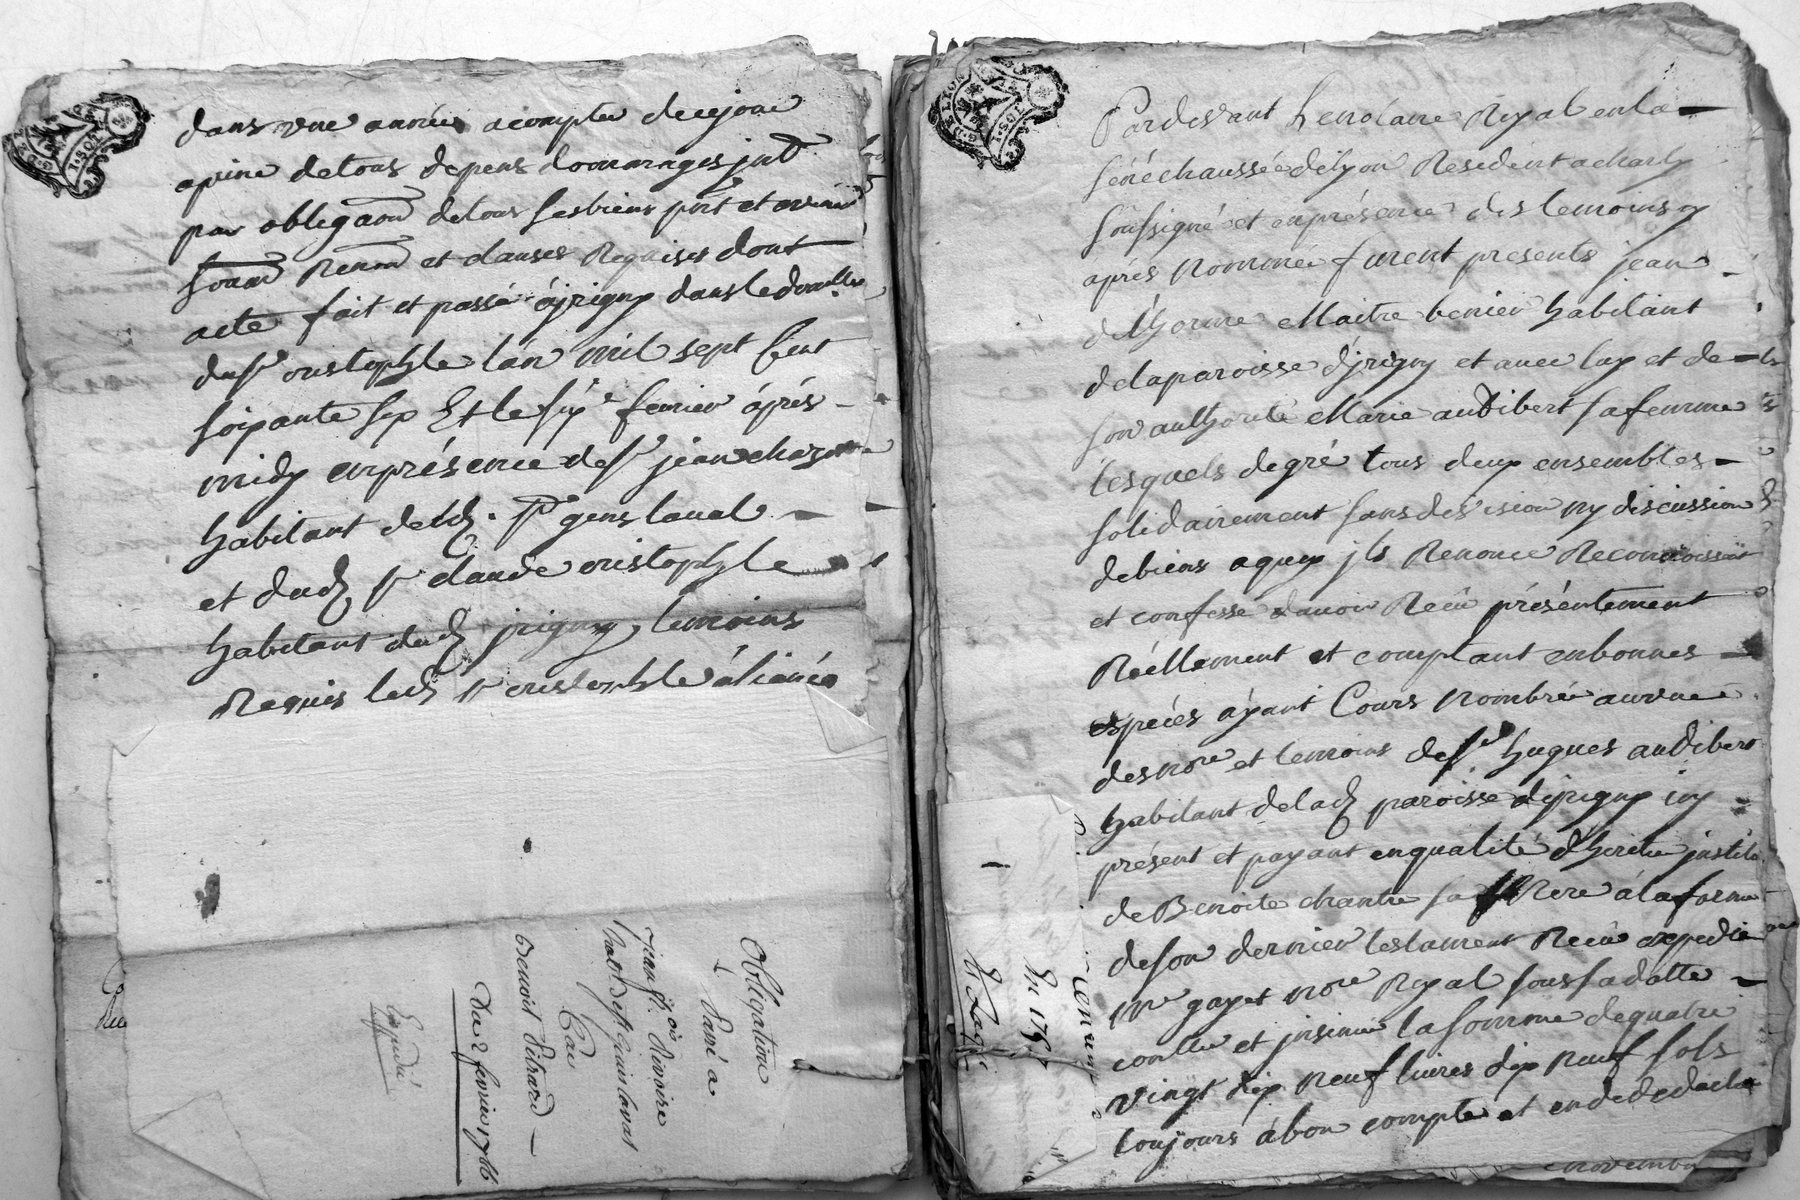 dans vne année acompter decejour
apeine detous depens dommages jnt
par obligaon detous sesbiens pnt et avenir
soum Renon et clauses Requises dont
acte fait et passé ájrigny dansledomille
dusr cristophle lan mil sept Cent
soixante six Et le six e fevrier áprés
midy enprésence desr jean
habitant delad. st genis laual
et dud sr claude cristophle
habitant dud jrigny temoins
Requis led sr cristophle
Obligation
Paué a
jean fr. Rivoire
hatt. de st Genis laval
Par
Benoit Pitrard
Du 2 fevrier 1766
Expedié
Pardevant Lenotaire Royal enla
sénéchaussée delyon Resident acharly
soussigné et enprésence des temoins cy
áprés nommé furent presents jean
delhorme Maitre benier habitant
delaparoisse djrigny et avec luy et de
son authorité Marie audibert safemme
lesquels degré tous deux ensembles
solidairement sans division ny discussion
debiens aquoy jls Renonce Reconnoissent
et confesse dauoir Reçu présentement
Réellement et comptant enbonnes
espéces áyant Cours nombrée auvue
desnore et temoins desr hugues audibert
habitant delad paroisse djrigny icy
présent et payant enqualité dheritier jnstitué
de Benoite chantre sa Mere álaforme
deson dernier testament Reçu expedié
me gayet nore Royal soussadatte
controllé et jnsinué lasomme dequatre
vingt dix neuf liures dix neuf sols
toujours ábon compte et endededacte
novembre